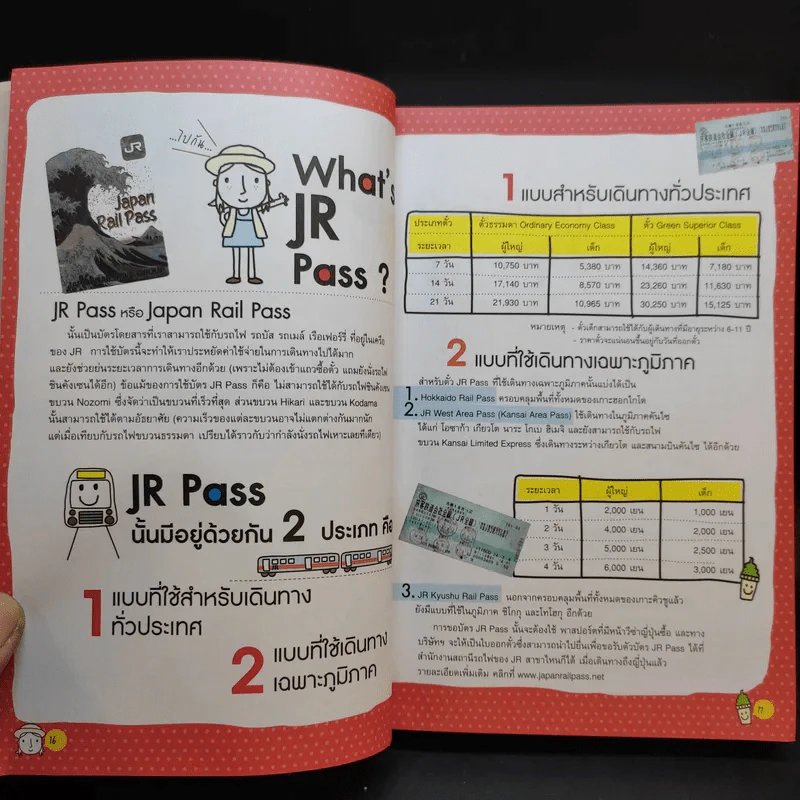 JR
Japan
Rail Pass
...ไปกัน...
What's
JR
Pass ?
JR Pass หรือ Japan Rail Pass
นั้นเป็นบัตรโดยสารที่เราสามารถใช้กับรถไฟ รถบัส รถเมล์ เรือเฟอร์รี่ ที่อยู่ในเครือ
ของ JR การใช้บัตรนี้จะทำให้เราประหยัดค่าใช้จ่ายในการเดินทางไปได้มาก
และยังช่วยย่นระยะเวลาการเดินทางอีกด้วย (เพราะไม่ต้องเข้าแถวซื้อตั๋ว แถมยังนั่งรถไฟ
ชินคังเซนได้อีก) ข้อแม้ของการใช้บัตร JR Pass ก็คือ ไม่สามารถใช้ได้กับรถไฟชินคังเซน
ขบวน Nozomi ซึ่งจัดว่าเป็นขบวนที่เร็วที่สุด ส่วนขบวน Hikari และขบวน Kodama
นั้นสามารถใช้ได้ตามอัธยาศัย (ความเร็วของแต่ละขบวนอาจไม่แตกต่างกันมากนัก
แต่เมื่อเทียบกับรถไฟขบวนธรรมดา เปรียบได้ราวกับว่ากำลังนั่งรถไฟเหาะเลยทีเดียว)
JR Pass
นั้นมีอยู่ด้วยกัน 2 ประเภท คือ
1 แบบที่ใช้สำหรับเดินทาง
ทั่วประเทศ
2 แบบที่ใช้เดินทาง
เฉพาะภูมิภาค
16
1 แบบสำหรับเดินทางทั่วประเทศ
ประเภทตั๋ว ตั๋วธรรมดา Ordinary Economy Class ตั๋ว Green Superior Class
ระยะเวลา ผู้ใหญ่ เด็ก ผู้ใหญ่ เด็ก
7 วัน 10,750 บาท 5,380 บาท 14,360 บาท 7,180 บาท
14 วัน 17,140 บาท 8,570 บาท 23,260 บาท 11,630 บาท
21 วัน 21,930 บาท 10,965 บาท 30,250 บาท 15,125 บาท
หมายเหตุ - ตั๋วเด็กสามารถใช้ได้กับผู้เดินทางที่มีอายุระหว่าง 6-11 ปี
- ราคาตั๋วจะแน่นอนขึ้นอยู่กับวันที่ออกตั๋ว
2 แบบที่ใช้เดินทางเฉพาะภูมิภาค
สำหรับตั๋ว JR Pass ที่ใช้เดินทางเฉพาะภูมิภาคนั้นแบ่งได้เป็น
1. Hokkaido Rail Pass ครอบคลุมพื้นที่ทั้งหมดของเกาะฮอกไกโด
2. JR West Area Pass (Kansai Area Pass) ใช้เดินทางในภูมิภาคคันไซ
ได้แก่ โอซาก้า เกียวโต นาระ โกเบ ฮิเมจิ และยังสามารถใช้กับรถไฟ
ขบวน Kansai Limited Express ซึ่งเดินทางระหว่างเกียวโต และสนามบินคันไซ ได้อีกด้วย
ระยะเวลา ผู้ใหญ่ เด็ก
1 วัน 2,000 เยน 1,000 เยน
2 วัน 4,000 เยน 2,000 เยน
3 วัน 5,000 เยน 2,500 เยน
4 วัน 6,000 เยน 3,000 เยน
3. JR Kyushu Rail Pass นอกจากครอบคลุมพื้นที่ทั้งหมดของเกาะคิวชูแล้ว
ยังมีแบบที่ใช้ในภูมิภาค ชิโกกุ และโทโฮกุ อีกด้วย
การขอบัตร JR Pass นั้นจะต้องใช้ พาสปอร์ตที่มีหน้าวีซ่าญี่ปุ่นซื้อ และทาง
บริษัทฯ จะให้เป็นใบออกตั๋วซึ่งสามารถนำไปยื่นเพื่อขอรับตัวบัตร JR Pass ได้ที่
สำนักงานสถานีรถไฟของ JR สาขาไหนก็ได้ เมื่อเดินทางถึงญี่ปุ่นแล้ว
รายละเอียดเพิ่มเติม คลิกที่ www.japanrailpass.net
17